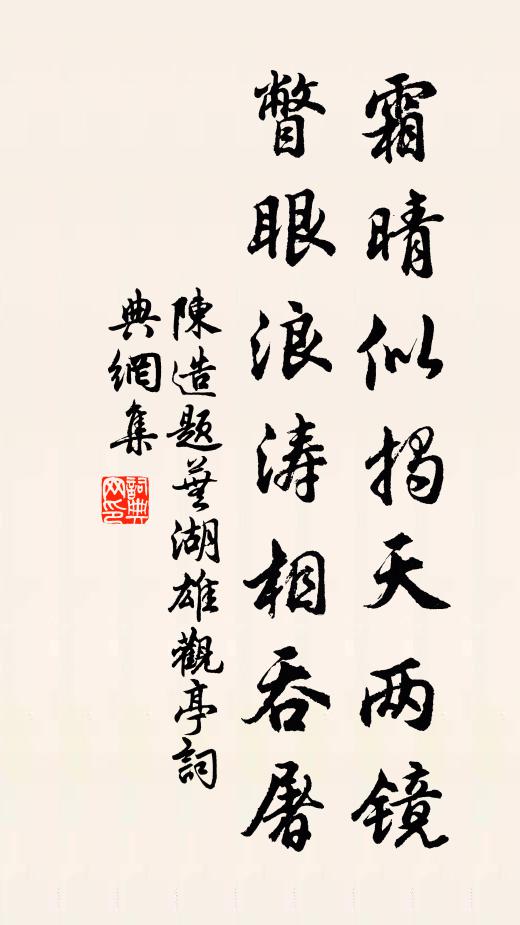 霜晴似揭天两镜
瞥眼浪涛相吞屠
陳造題蕪湖雄觀亭詞
典網集
詞典网印